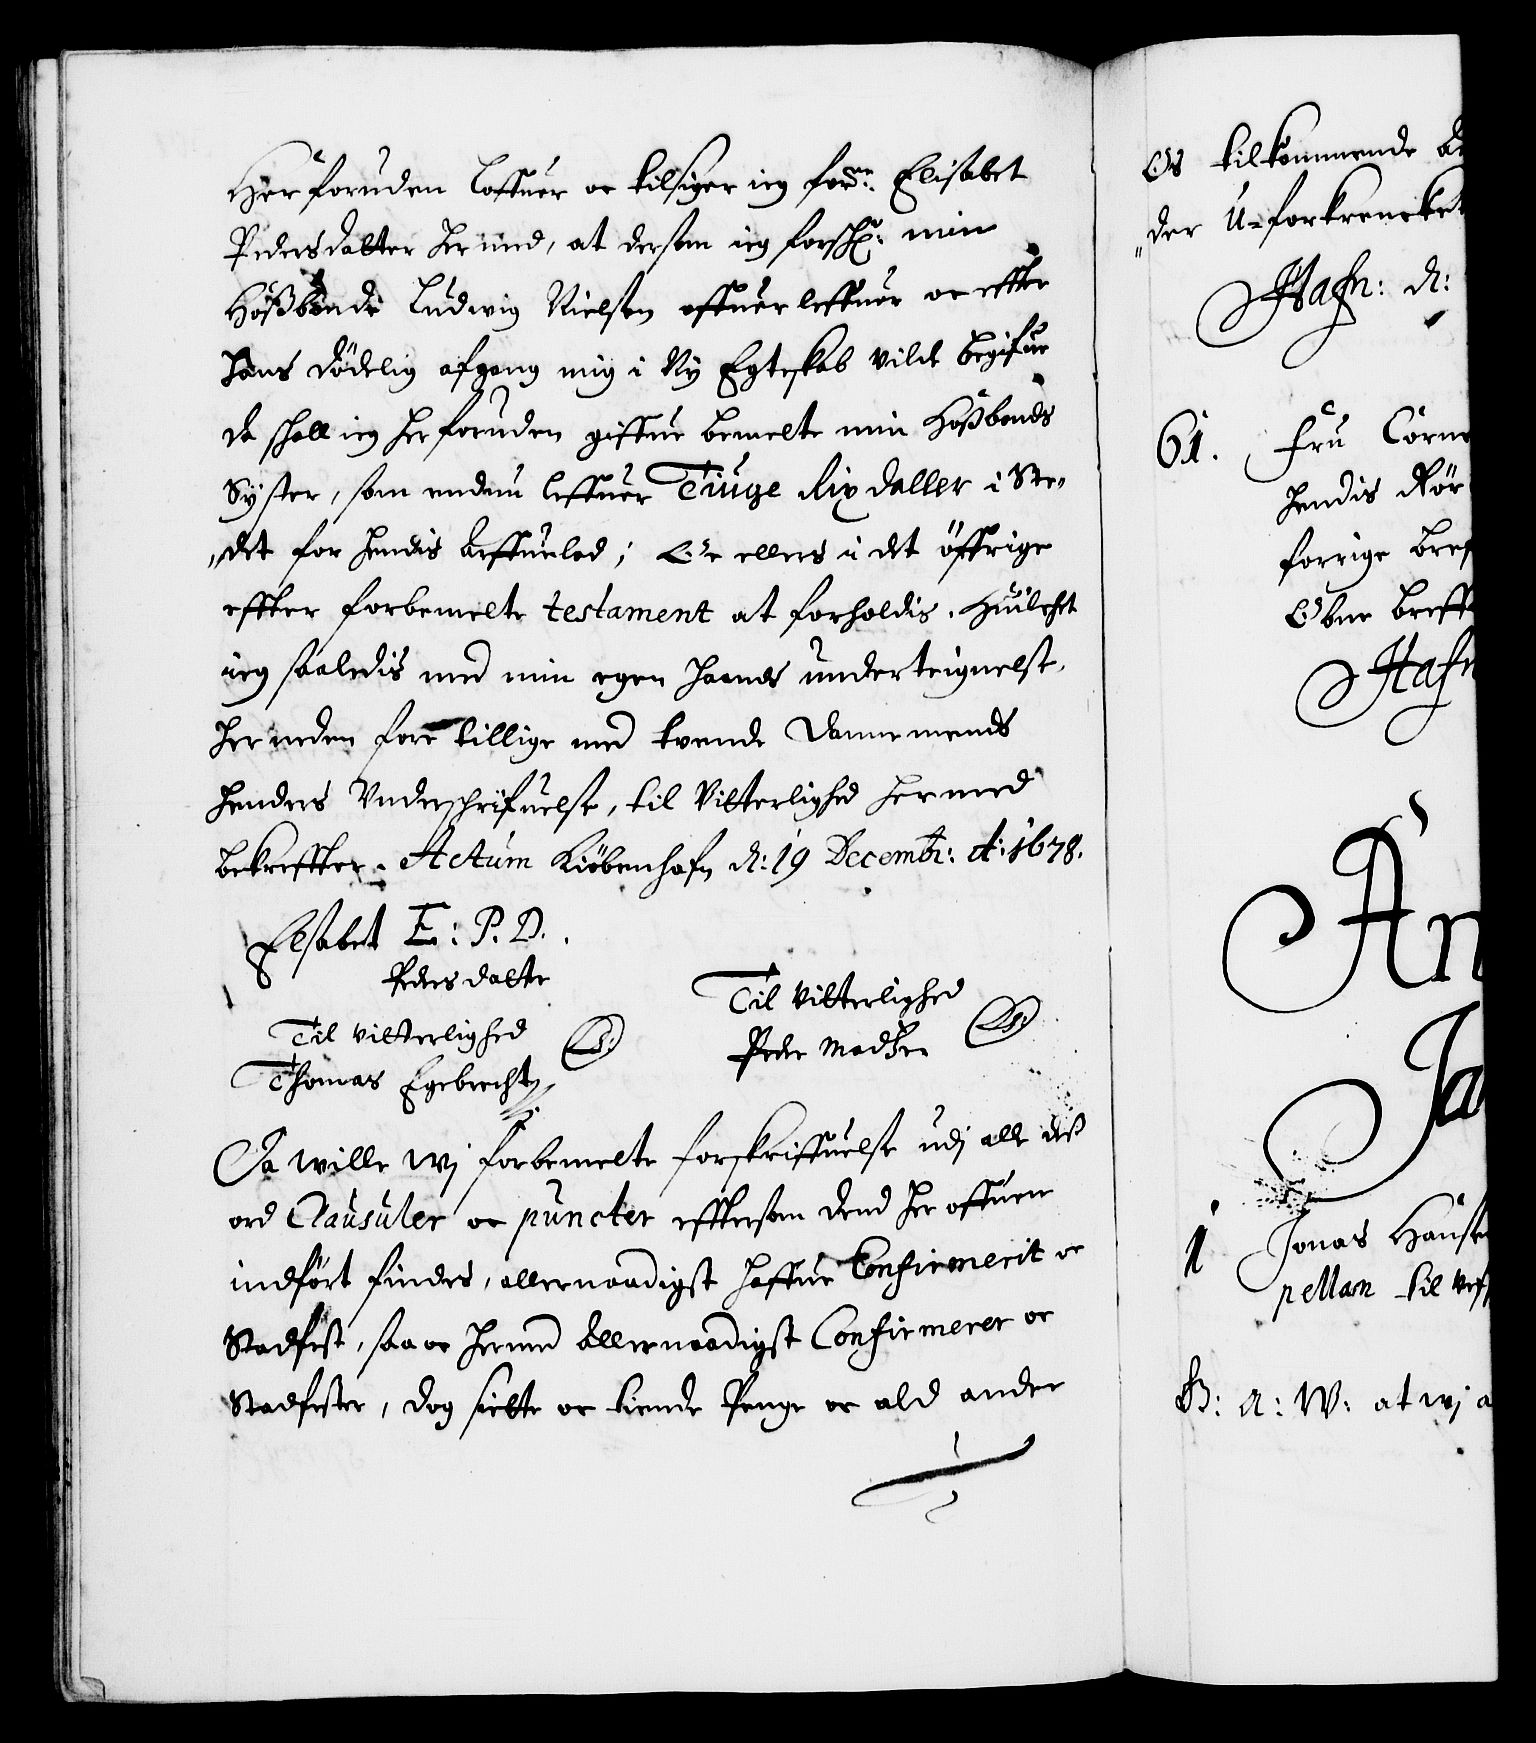 Her foruden loffuer oc tilsiger ieg fornn: Elisabet
Pedersdatter hermed, at dersom ieg forschne: min
Hoßbonde Ludwig Nielsen offuerleffuer oc effter
hans dödelig afgang mig i Ny Egteskab vilde begifue
da schall ieg her foruden giffue bemelte min Hoßbonds
Syster, som endnu leffuer Tiuge Rixdaller i Ste-
det for hendis Arffuelod; Oc ellers i det öffrige
effter forbemelte testament at forholdis. Huilchet
ieg saaledis med min egen haands underteignelse,
her neden fore tillige med tvende Dannemends
henders Underschrifuelse, til Vitterlighed hermed
bekreffter. Actum Kiöbenhafn d: 19 Decemb: A: 1678.
Elsabet E: P. D.
Peders datter
Til vitterlighed
Thomas Egebrecht
(LS:)
Til Vitterlighed
Peder Madsen
(LS:)
Da wille wj forbemelte forskriffuelse udj alle dess
ord Clausuler oc puncter efftersom dend her offuen
indfört findes, allernaadigst haffue Confirmerit oc
Stadfest, saa oc hermed Allernaadigst Confirmerer oc
Stadfester, dog siette oc tiende Penge oc ald anden
Os tilkommende
der U-forkrencket
Hafn: d:
61. Fru Corn
hendis
forrige bref
Obne breff
Hafn
An
Ja
1 Jonas Hansen
pellan til
G: A: W: at wj a